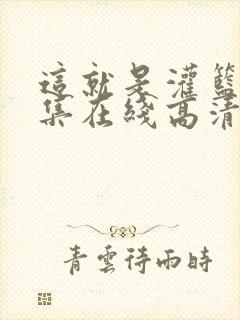 這就是灌籃
集在綫高清
青雲待雨時